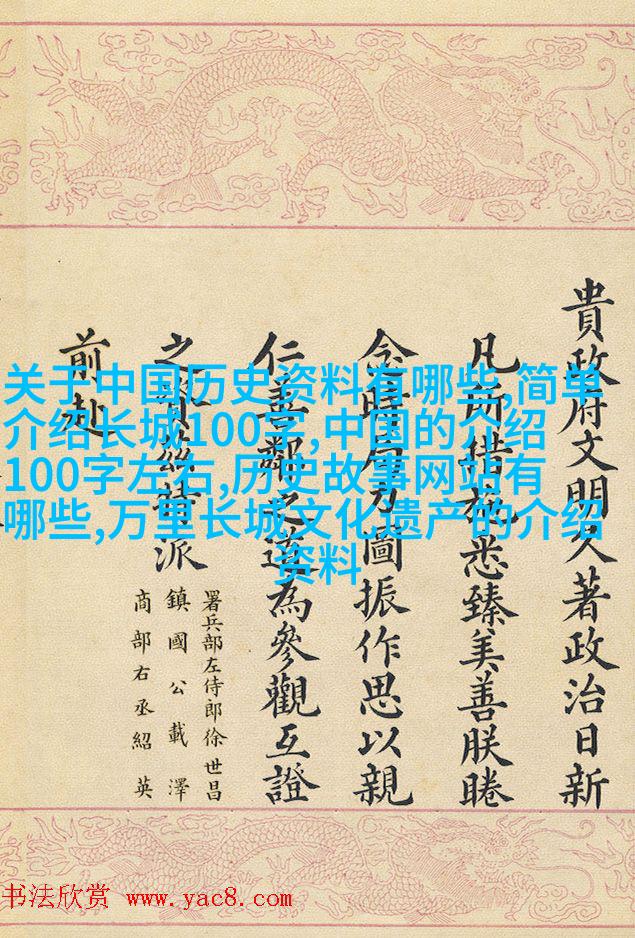 貴政府文明久著政治日新
凡所措施悉臻美善朕睠
念時局力圖振作思以親
仁善鄰之道為參觀互證
之資茲特派
署兵部左侍郎徐世昌
鎮國公載澤
商部右丞紹英
前赴
关于中国历史资料有哪些,简单
介绍长城100字,中国的介绍
100字左右,历史故事网站有
哪些,万里长城文化遗产的介绍
资料
书法欣赏 www.yac8.com